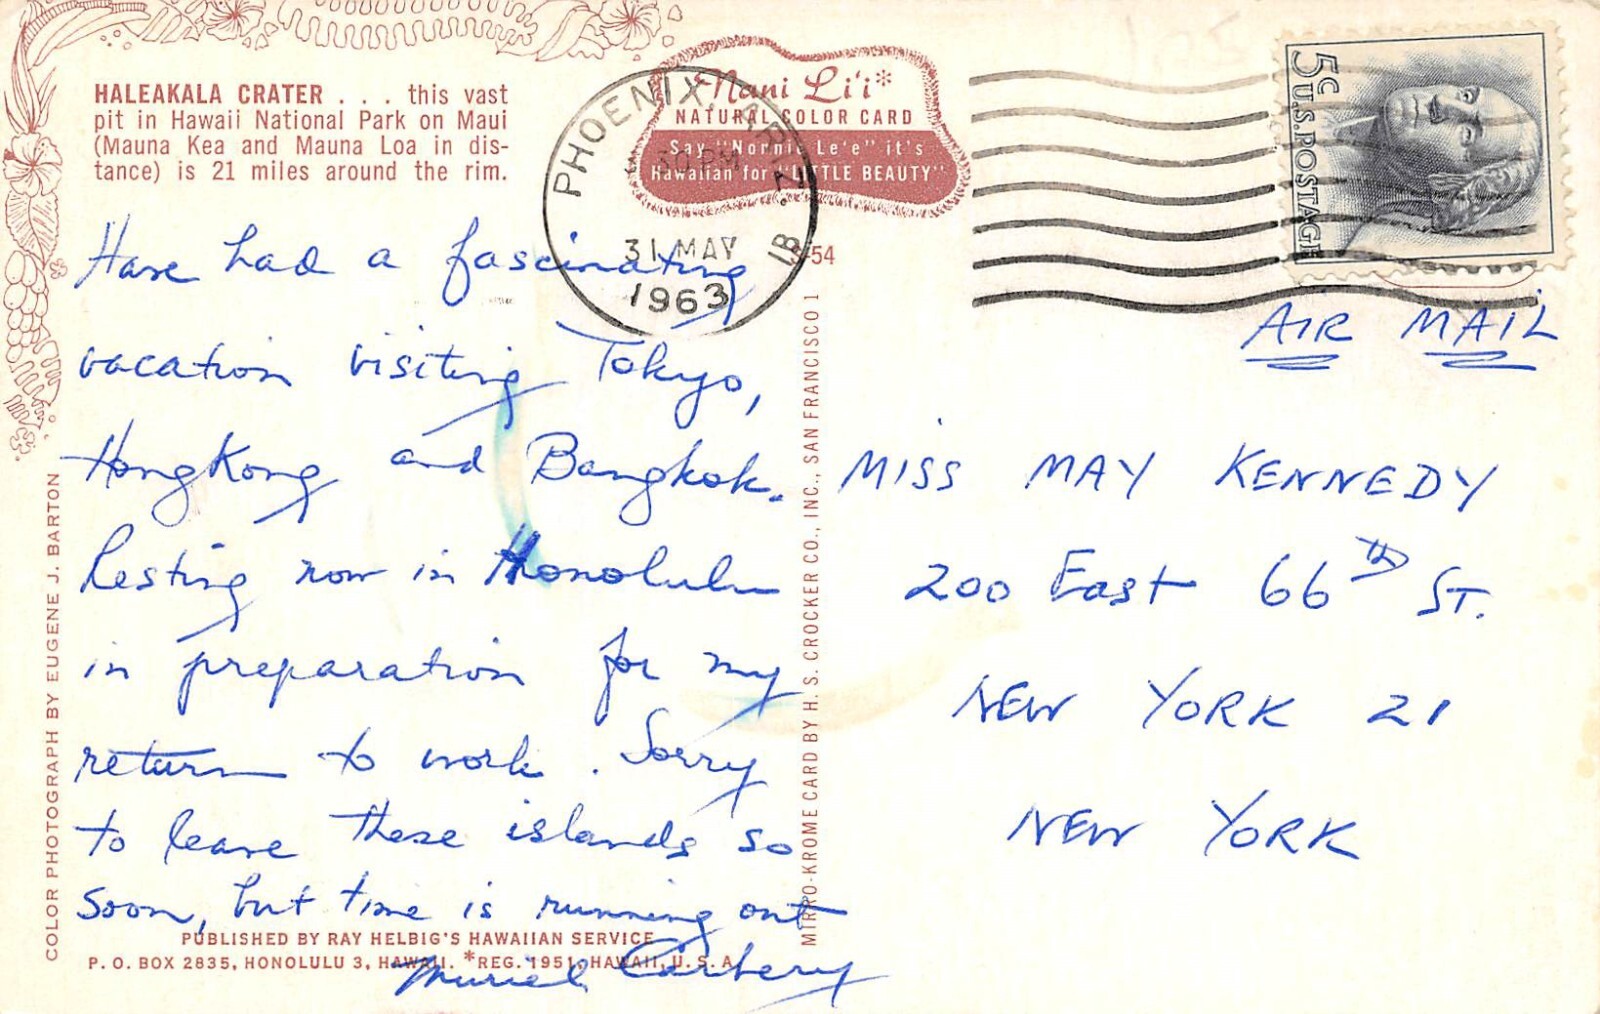 HALEAKALA CRATER . . . this vast
pit in Hawaii National Park on Maui
(Mauna Kea and Mauna Loa in dis-
tance) is 21 miles around the rim.
Nani Li'i*
NATURAL COLOR CARD
Say "Nonnie Le'e" it's
Hawaiian for "LITTLE BEAUTY"
PHOENIX, ARIZ.
30 PM
31 MAY
1963
1B
54
5c U.S. POSTAGE
AIR MAIL
Have had a fascinating
vacation visiting Tokyo,
HongKong and Bangkok.
Resting now in Honolulu
in preparation for my
return to work. Sorry
to leave these islands so
soon, but time is running out
Muriel Carbery
MISS MAY KENNEDY
200 East 66th ST.
NEW YORK 21
NEW YORK
COLOR PHOTOGRAPH BY EUGENE J. BARTON
MIRRO-KROME CARD BY H. S. CROCKER CO., INC., SAN FRANCISCO 1
PUBLISHED BY RAY HELBIG'S HAWAIIAN SERVICE
P. O. BOX 2835, HONOLULU 3, HAWAII. *REG. 1951, HAWAII, U. S. A.